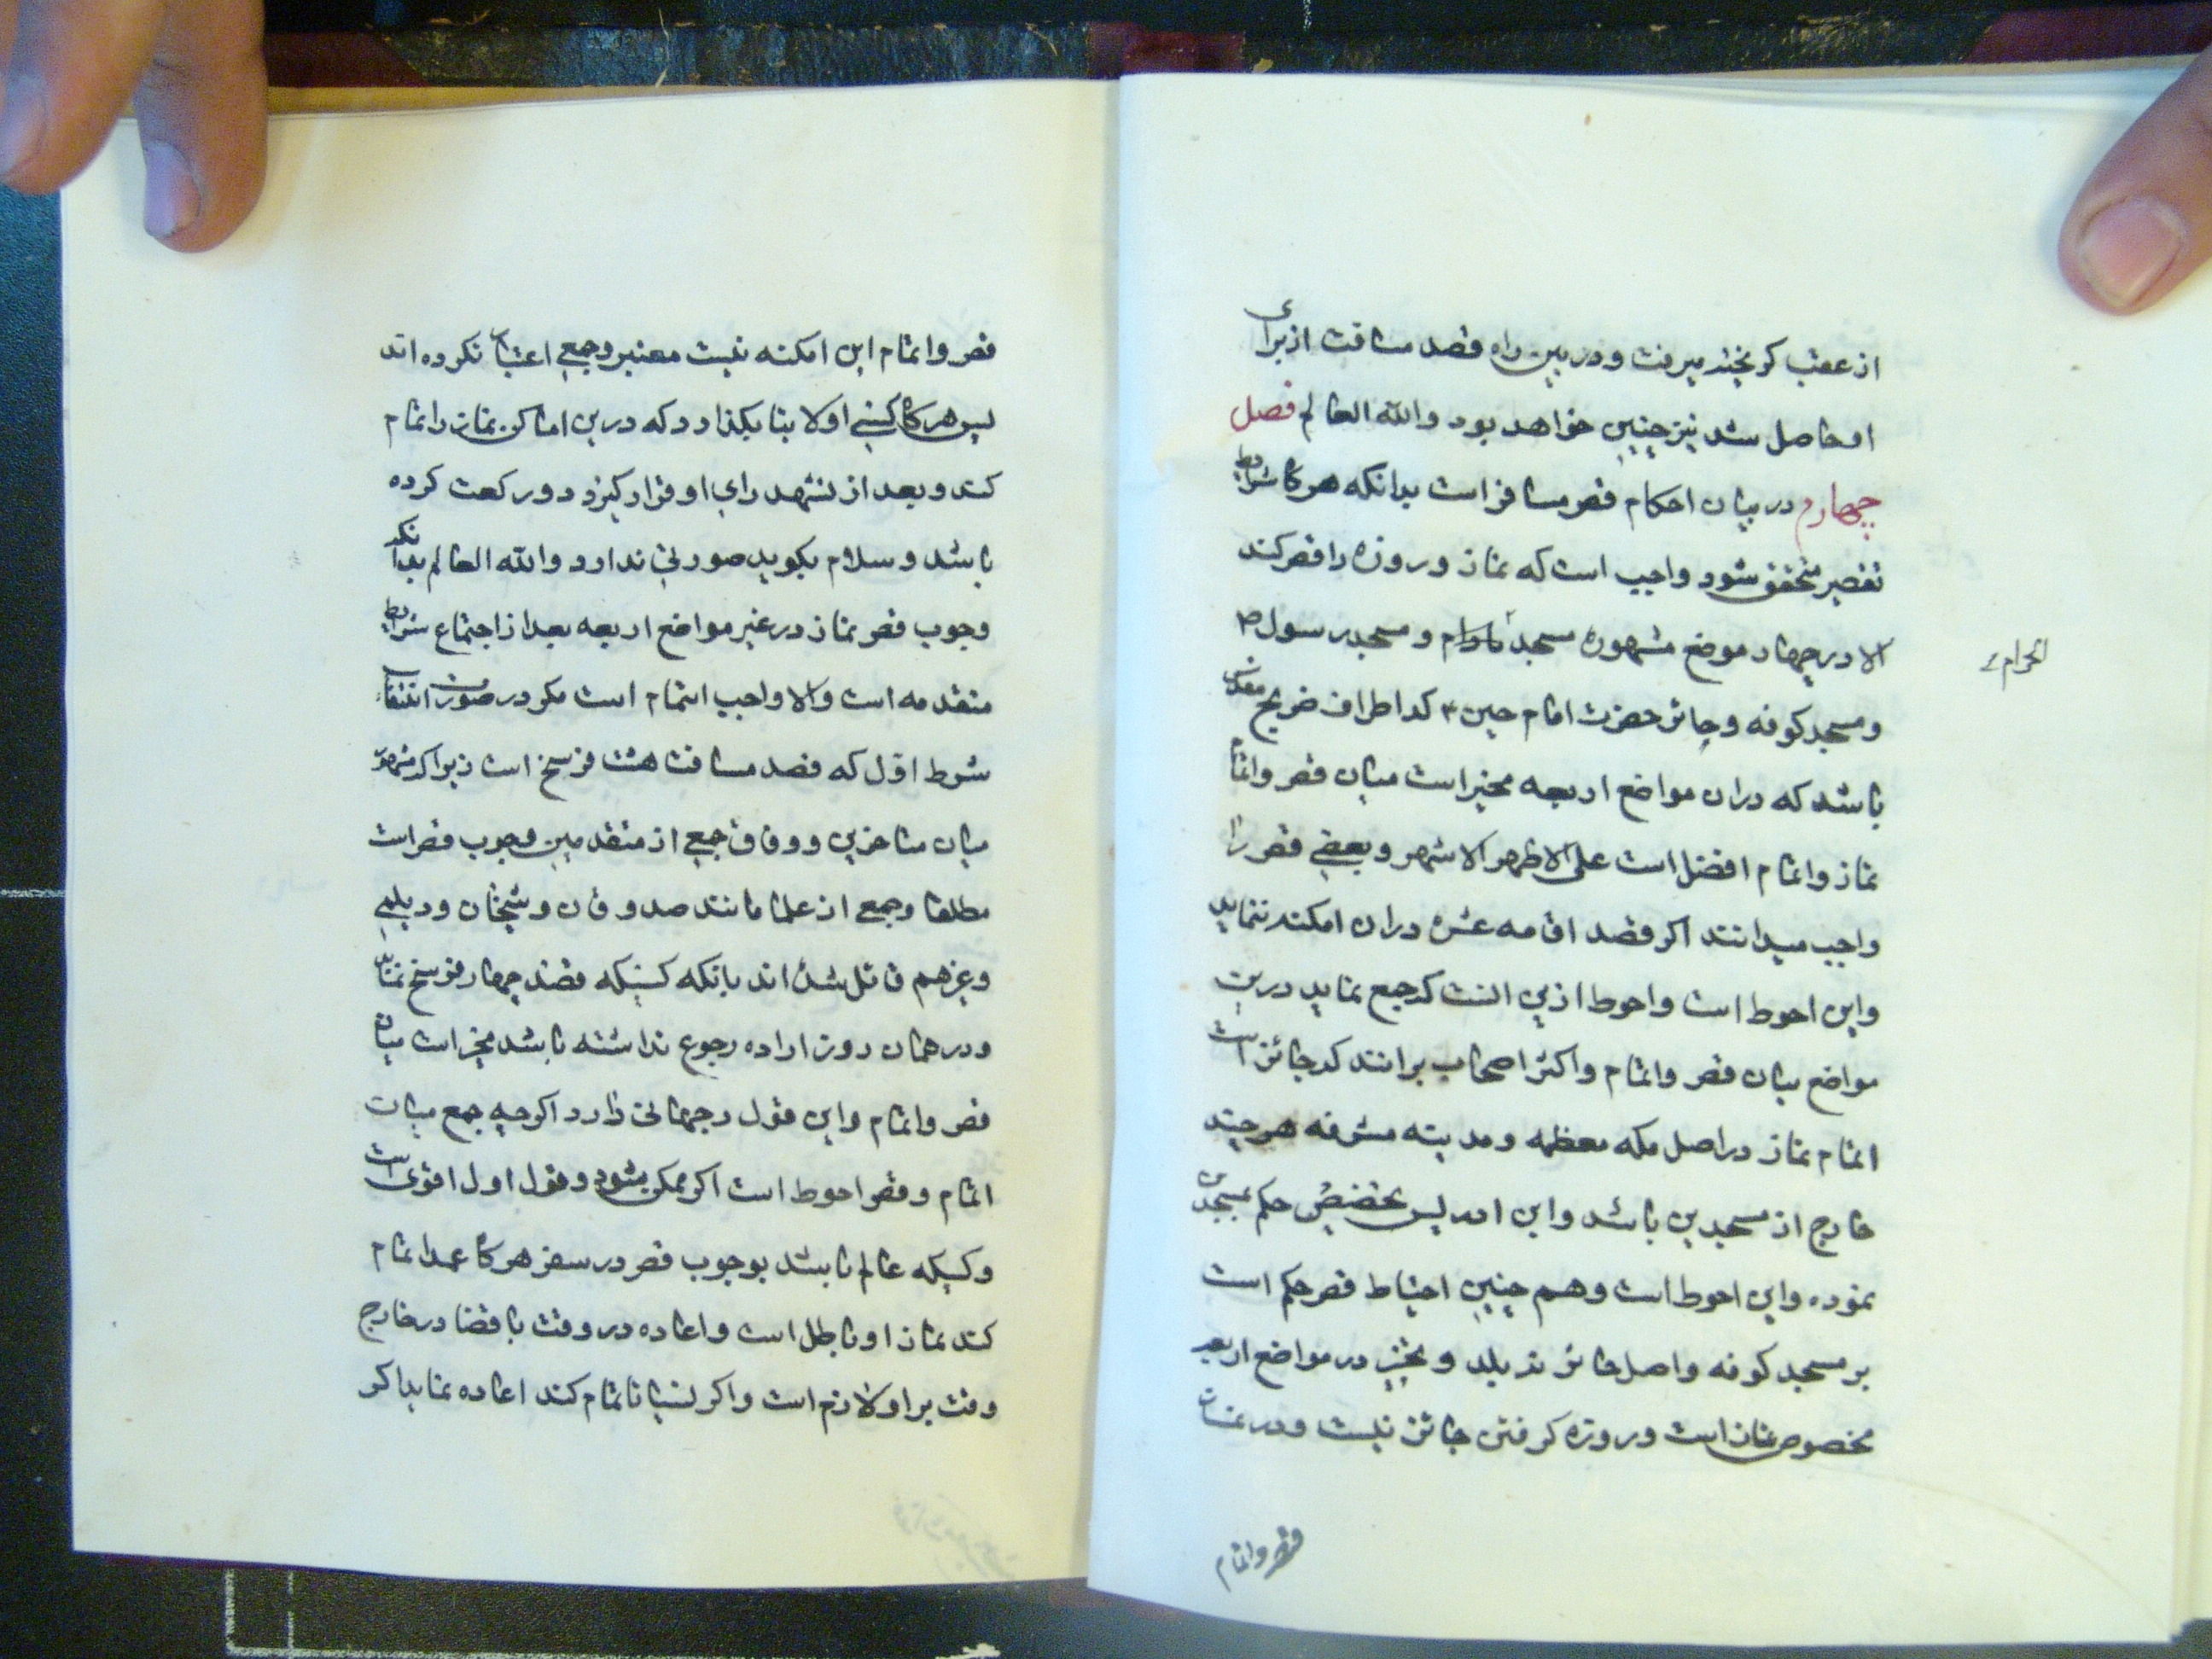 از عقب گریخته میرفت و در بین راه قصد مسافت از برای
او حاصل شد نیز چنین خواهد بود والله العالم فصل
چهارم در بیان احکام قصر مسافر است بدانکه هرگاه شرایط
تقصیر متحقق شود واجب است که نماز و روزه را قصر کند
الا در چهار موضع مشهوره مسجد و مسجد رسول ص
الحرام
و مسجد کوفه و حائر حضرت امام حسین ع که اطراف ضریح مقدس
باشد که در ان مواضع اربعه مخیر است میان قصر و اتمام
نماز و اتمام افضل است علی الاظهر الاشهر و بعضی قصر را
واجب میدانند اکر قصد اقامه عشره در ان امکنه ننماید
و این احوط است و احوط ازین انست که جمع نماید درین
مواضع میان قصر و اتمام و اکثر اصحاب برانند که جائز است
اتمام نماز در اصل مکه معظمه و مدینه مشرفه هر چند
خارج از مسجدین باشد و ابن ادریس تخصیص حکم بمسجدین
نموده و این احوط است و هم چنین احتیاط قصر حکم است
بر مسجد کوفه و اصل حائر نه بلد و تخییر در مواضع اربعه
مخصوص نماز است و روزه کرفتن جائز نیست و در نماز
قصر و اتمام
قصر و اتمام این امکنه نیست معتبر و جمعی اعتبار نکرده اند
پس هرگاه کسی اولا بنا بگذارد که درین اماکن نماز را تمام
کند و بعد از تشهد رای او قرار کیرد دو رکعت کرده
باشد و سلام بکوید صورتی ندارد والله العالم بدانکه
وجوب قصر نماز در غیر مواضع اربعه بعد از اجتماع شرایط
متقدمه است و الا واجب اتمام است مکر در صورت انتفاء
شرط اول که قصد مسافت هشت فرسخ است زیرا که مشهور
میان متاخرین و وفاق جمعی از متقدمین وجوب قصر است
مطلقا و جمعی از علما مانند صدوقان و شیخان و دیلمی
و غیرهم قائل شده اند بانکه کسیکه قصد چهار فرسخ نماید
و در همان روز اراده رجوع نداشته باشد مخیر است میان
قصر و اتمام و این قول رجحانی دارد اکرچه جمع میان
اتمام و قصر احوط است اکر ممکن بشود و قول اول اقوی است
و کسیکه عالم باشد بوجوب قصر در سفر هرگاه عمدا تمام
کند نماز او باطل است و اعاده در وقت یا قضا در خارج
وقت بر او لازم است و اکر نسیانا تمام کند اعاده نماید اکر